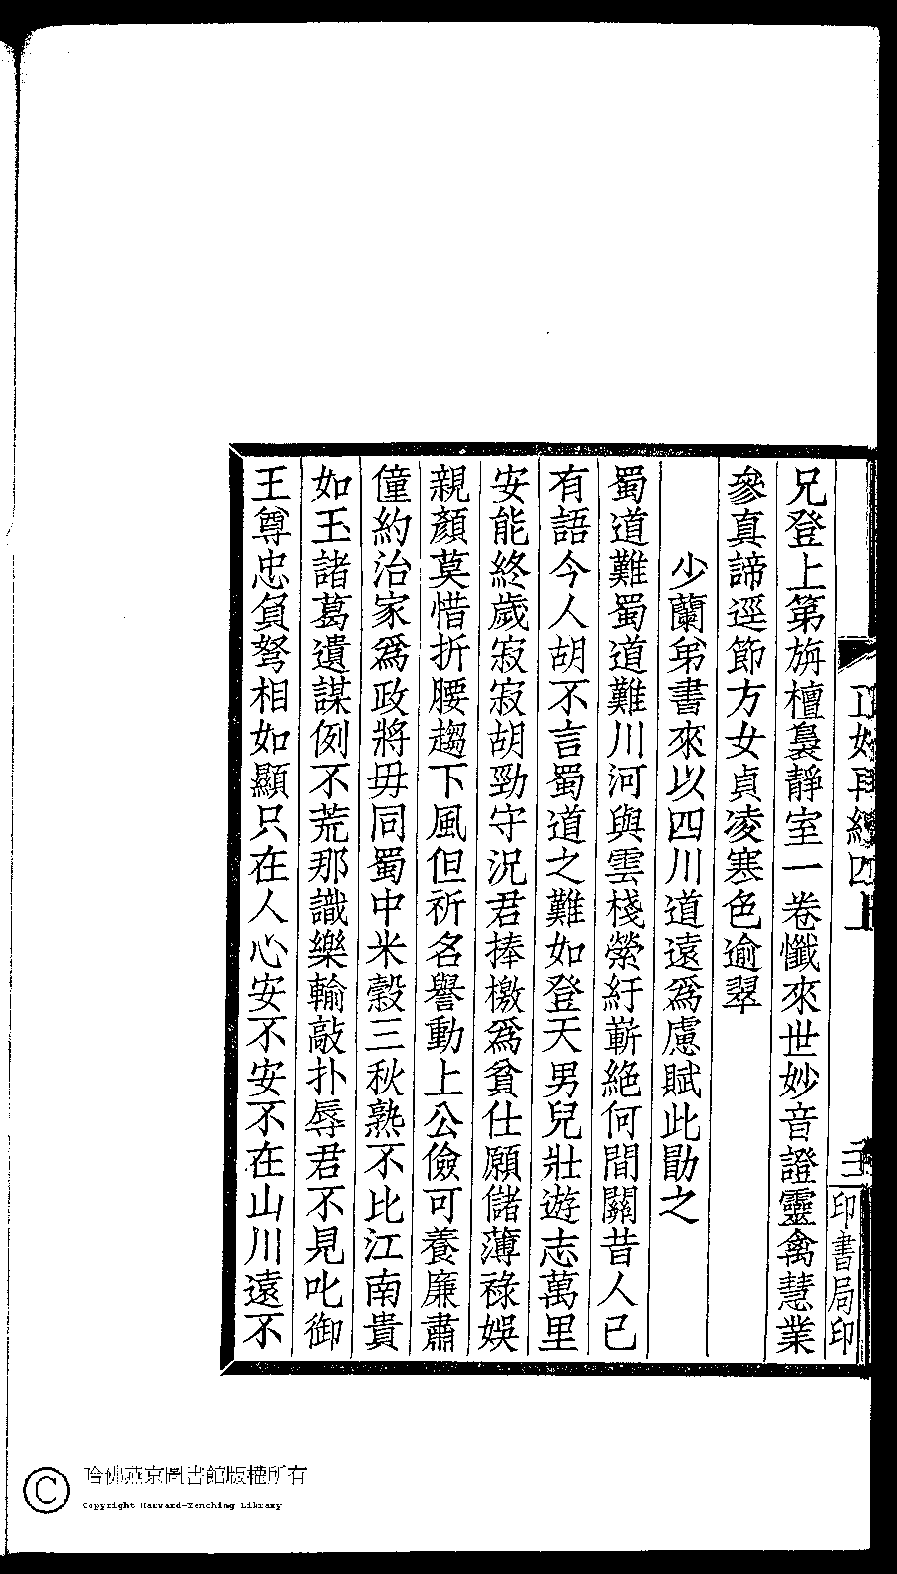 兄登上第旃檀裊靜室一卷懺來世妙音證靈禽慧業
參真諦逕節方女貞凌寒色逾翠
少蘭弟書來以四川道遠爲慮賦此勖之
蜀道難蜀道難川河與雲棧縈紆嶄絕何間關昔人已
有語今人胡不言蜀道之難如登天男兒壯遊志萬里
安能終歲寂寂胡勁守況君捧檄爲貧仕願儲薄祿娛
親顏莫惜折腰趨下風但祈名譽動上公儉可養廉肅
僮約治家爲政將毋同蜀中米穀三秋熟不比江南貴
如玉諸葛遺謀例不荒那識樂輸敲扑辱君不見叱御
王尊忠負弩相如顯只在人心安不安不在山川遠不
四上
三
印書局印
哈佛燕京圖書館版權所有
Copyright Harvard-Yenching Library